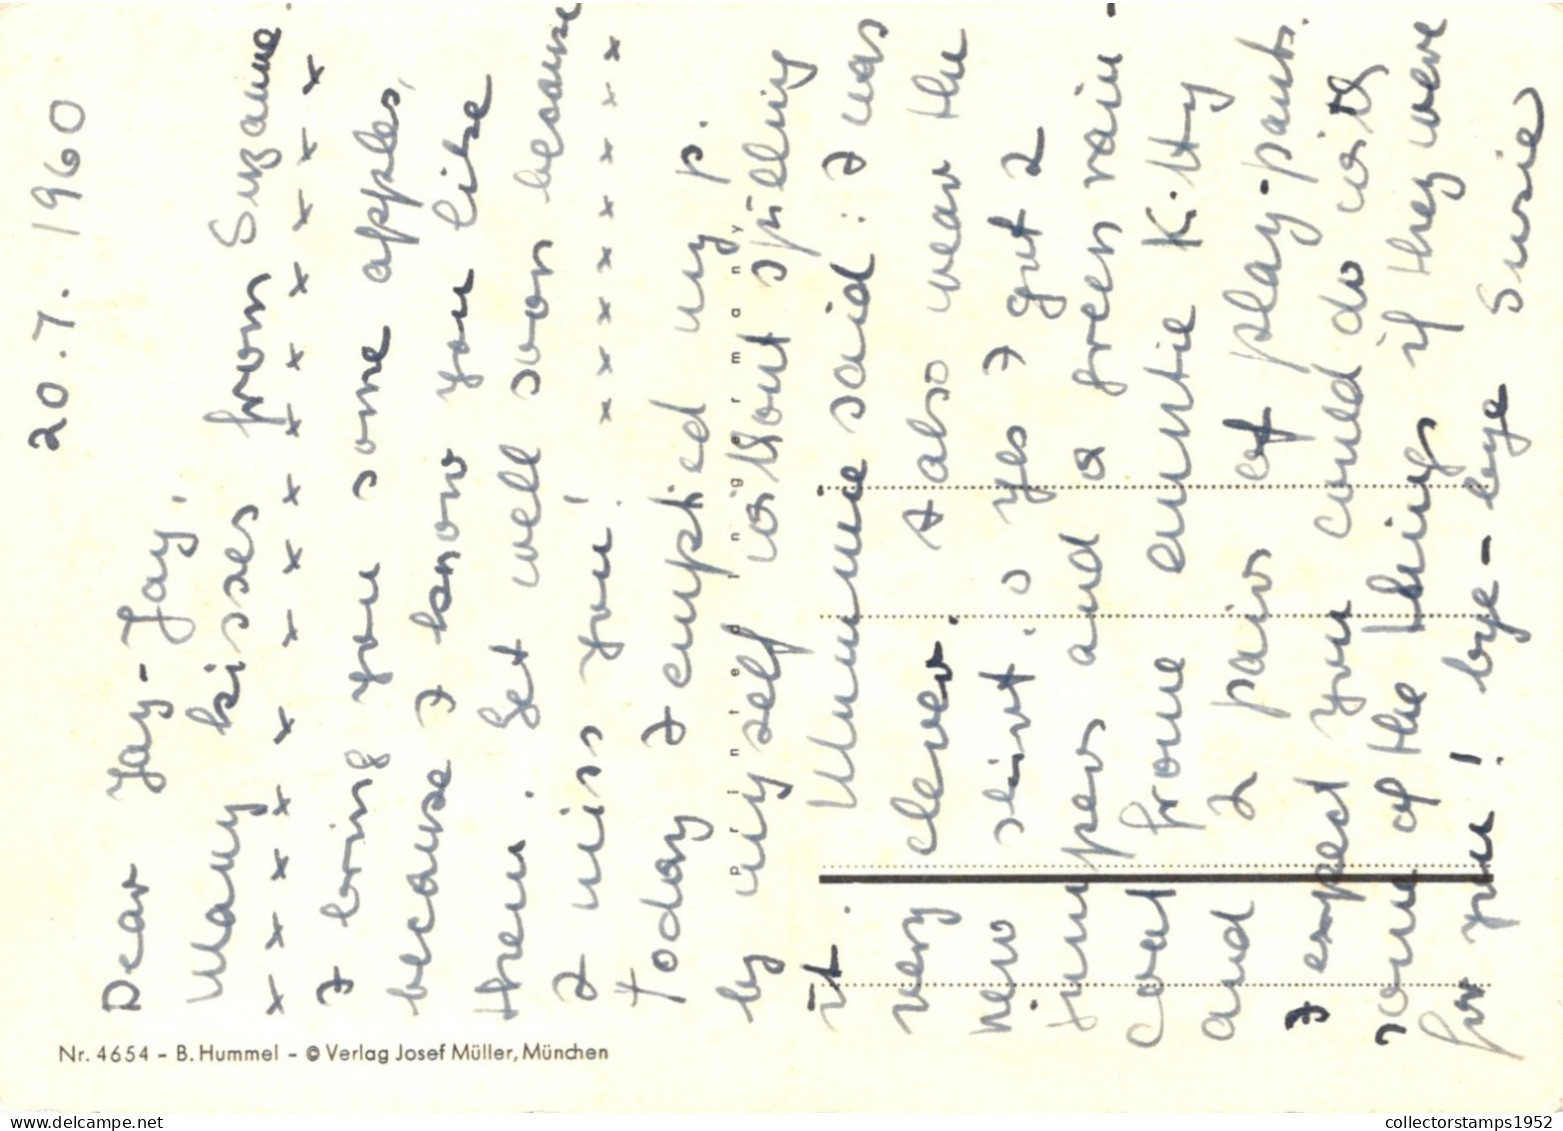 20.7.1960
Dear Jay-Jay,
Many kisses from Suzanne
x x x x x x x x x x x x x x x
I bring you some apples,
because I know you like
them. Get well soon because
I miss you! x x x x x x x x
Today I emptied my p.
by myself without spilling
it. Mummie said: I was
very clever. I also wear the
new skirt. o yes I got 2
jumpers and a green rain-
coat from auntie Kitty
and 2 pairs of play-pants.
I expect you could do with
some of the things if they were
for you! bye-bye Susie
Printed in Germany
Nr. 4654 - B. Hummel - © Verlag Josef Müller, München
collectorstamps1952